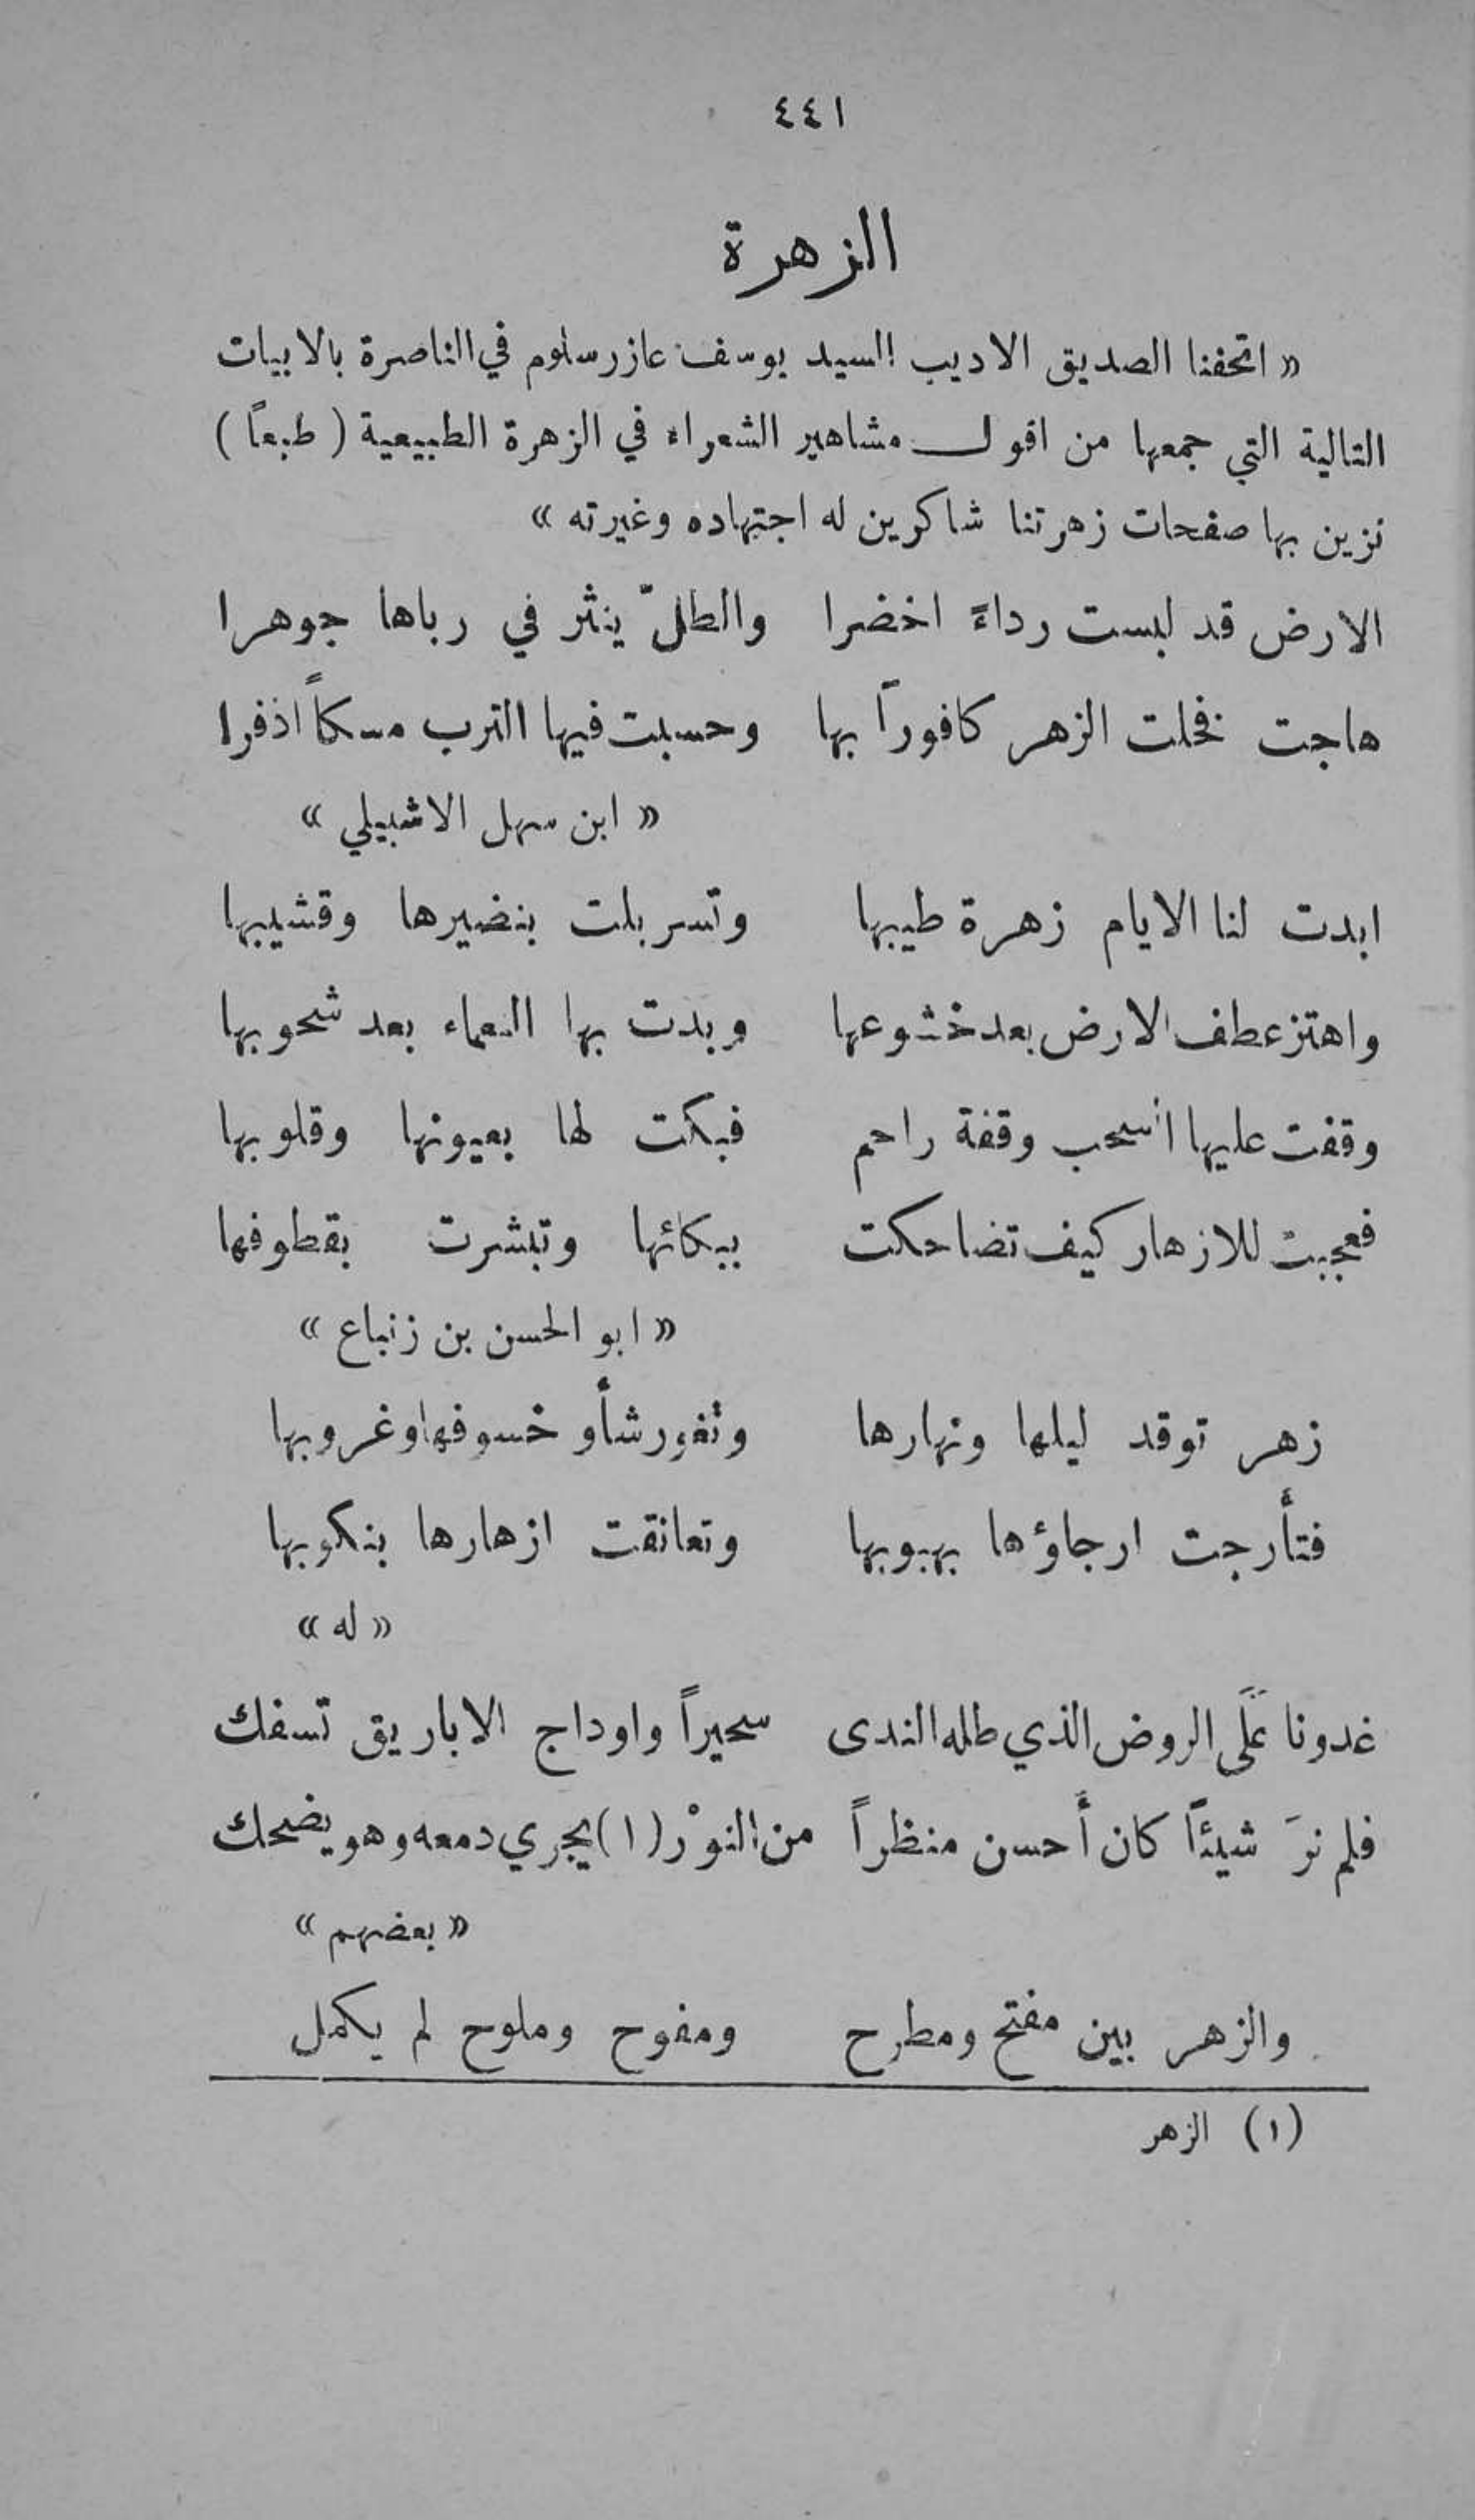 ٤٤١
الزهرة
« اتحفنا الصديق الاديب السيد يوسف عازر سلوم في الناصرة بالابيات
التالية التي جمعها من اقول مشاهير الشعراء في الزهرة الطبيعية ( طبعاً )
نزين بها صفحات زهرتنا شاكرين له اجتهاده وغيرته »
الارض قد لبست رداءً اخضرا والطلّ ينثر في رباها جوهرا
هاجت فخلت الزهر كافوراً بها وحسبت فيها الترب مسكاً اذفرا
« ابن سهل الاشبيلي »
ابدت لنا الايام زهرة طيبها وتسربلت بنضيرها وقشيبها
واهتز عطف الارض بعد خشوعها وبدت بها النعماء بعد شحوبها
وقفت عليها السحب وقفة راحم فبكت لها بعيونها وقلوبها
فعجبت للازهار كيف تضاحكت ببكائها وتبشرت بقطوفها
« ابو الحسن بن زنباع »
زهر توقد ليلها ونهارها وتفور شأو خسوفها وغروبها
فتأرجت ارجاؤها بهبوبها وتعانقت ازهارها بنكوبها
« له »
غدونا عَلَى الروض الذي طله الندى سحيراً واوداج الاباريق تسفك
فلم نرَ شيئاً كان أَحسن منظراً من النوْر (١) يجري دمعه وهو يضحك
« بعضهم »
والزهر بين مفتح ومطرح ومفوح وملوح لم يكمل
(١) الزهر